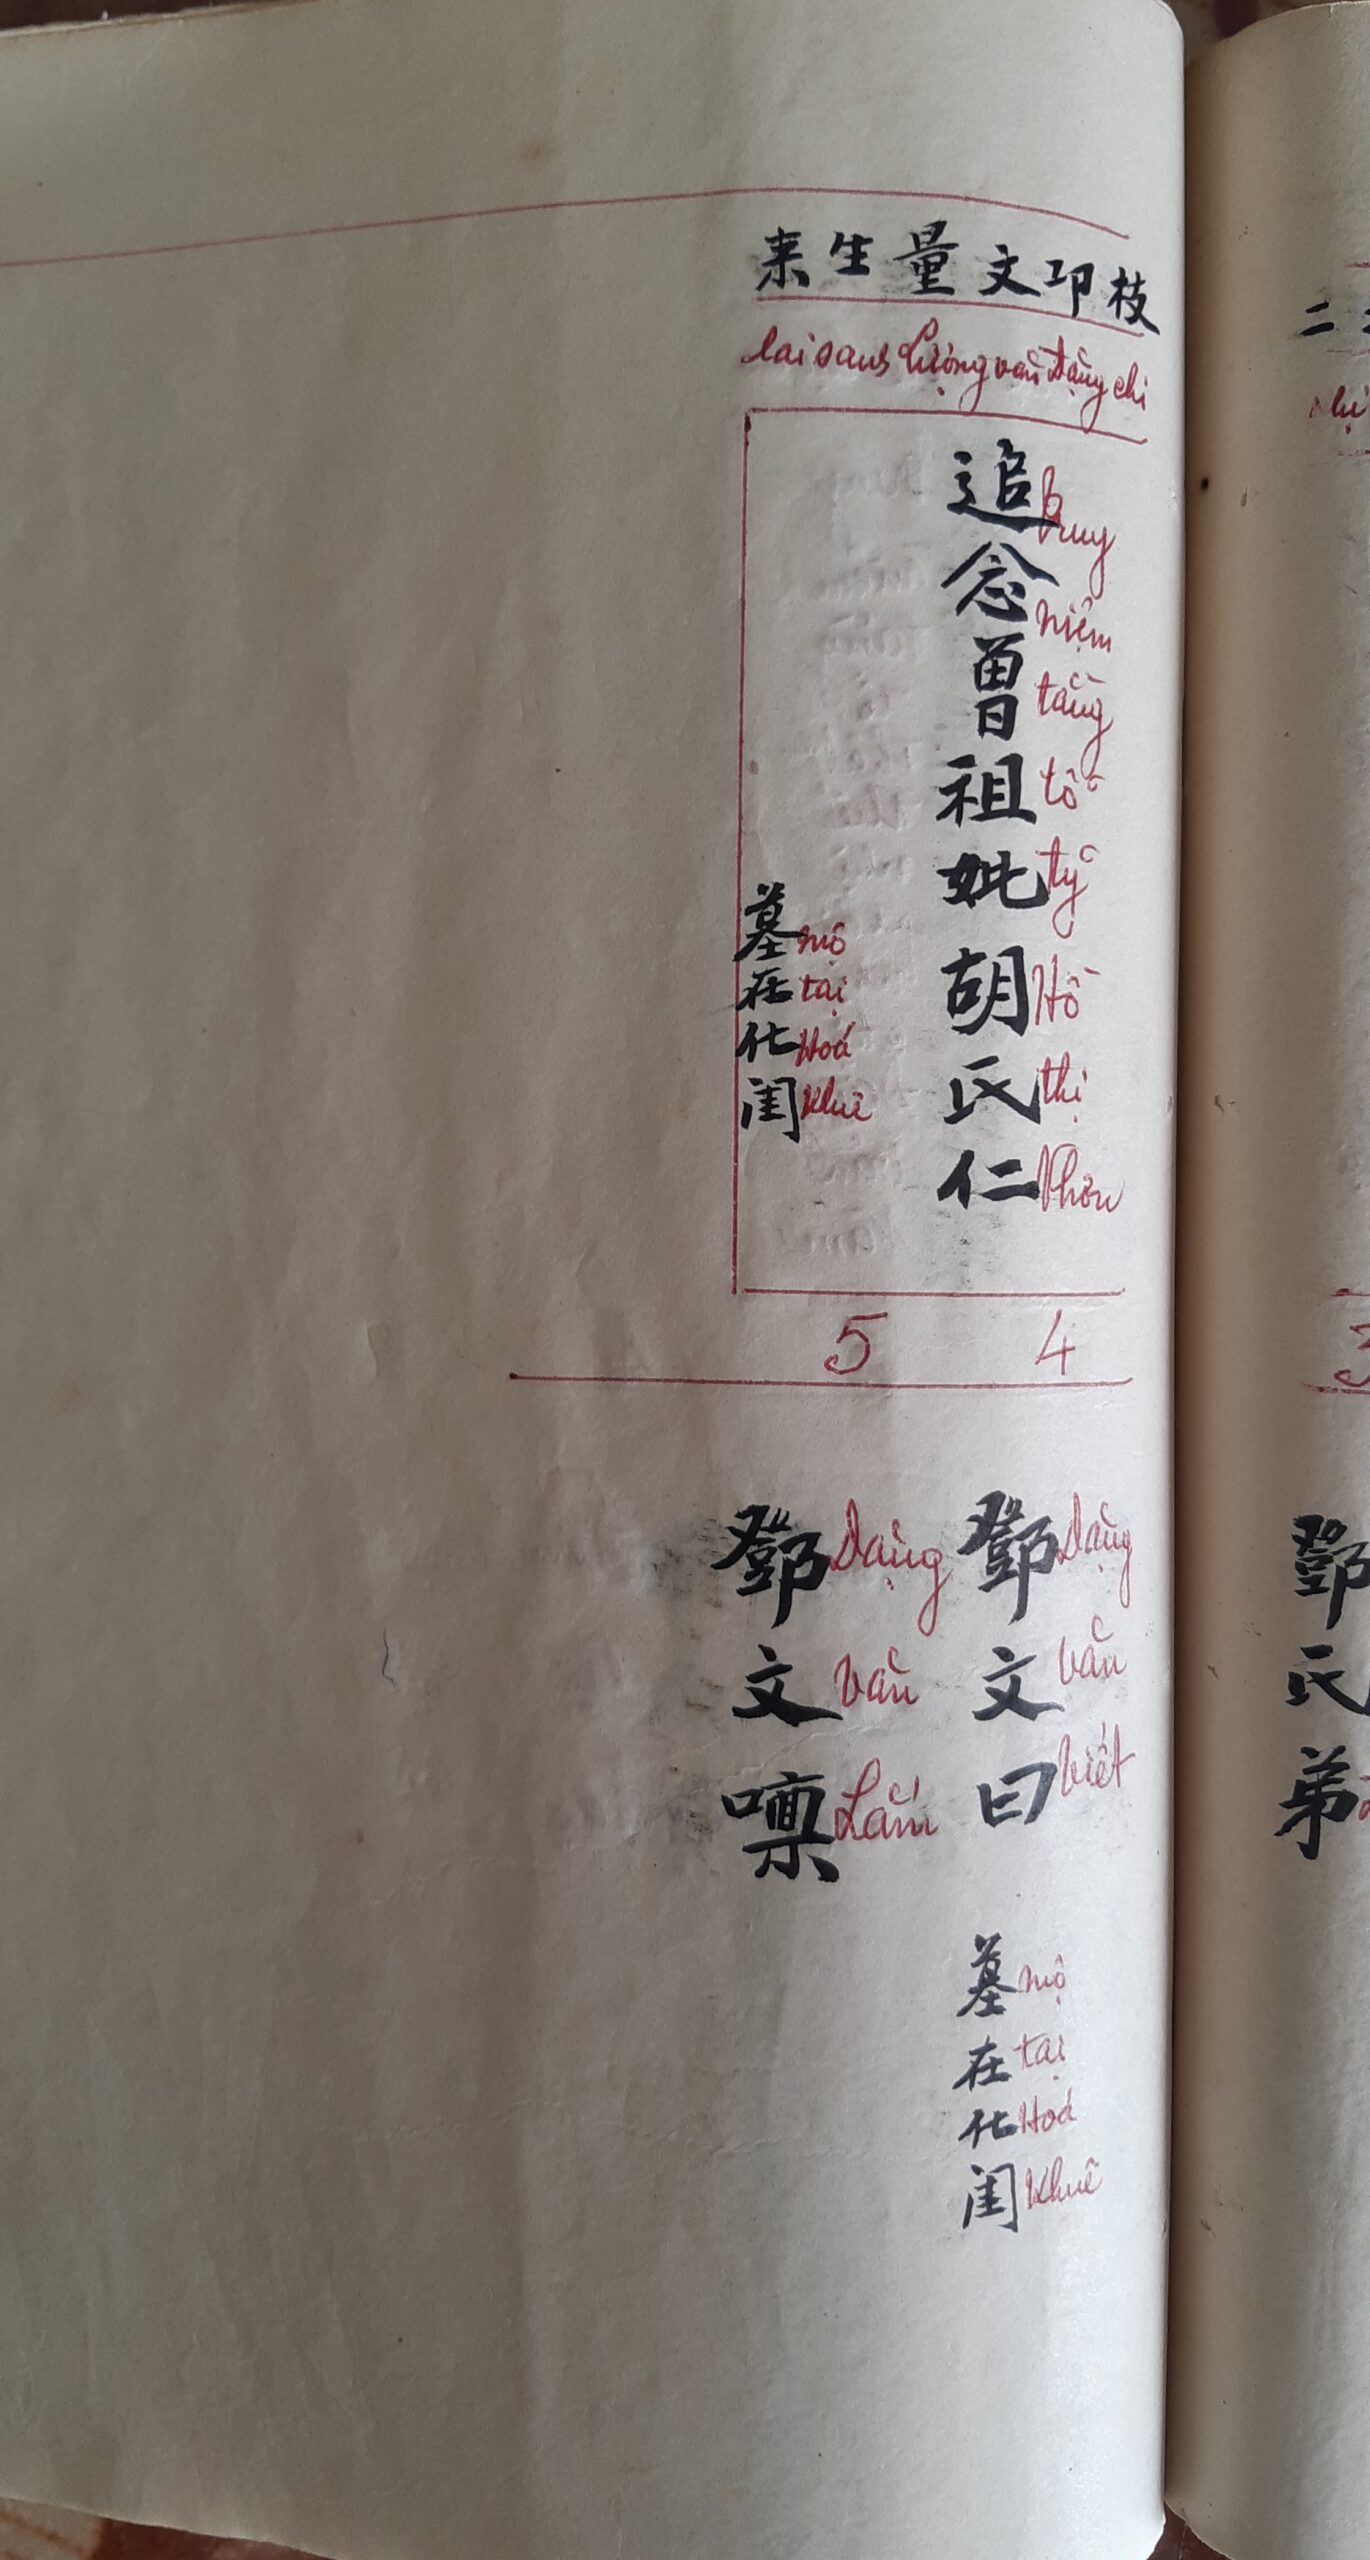 枝卭文量生来
lai sanh Lượng văn Đặng chi
追念曾祖妣胡氏仁
truy niệm tằng tổ tỷ Hồ thị Nhơn
墓在化閨
mộ tại Hoá Khuê
4
5
鄧文曰
Đặng văn Viết
墓在化閨
mộ tại Hoá Khuê
鄧文懍
Đặng văn Lẫm
二
3
鄧氏弟